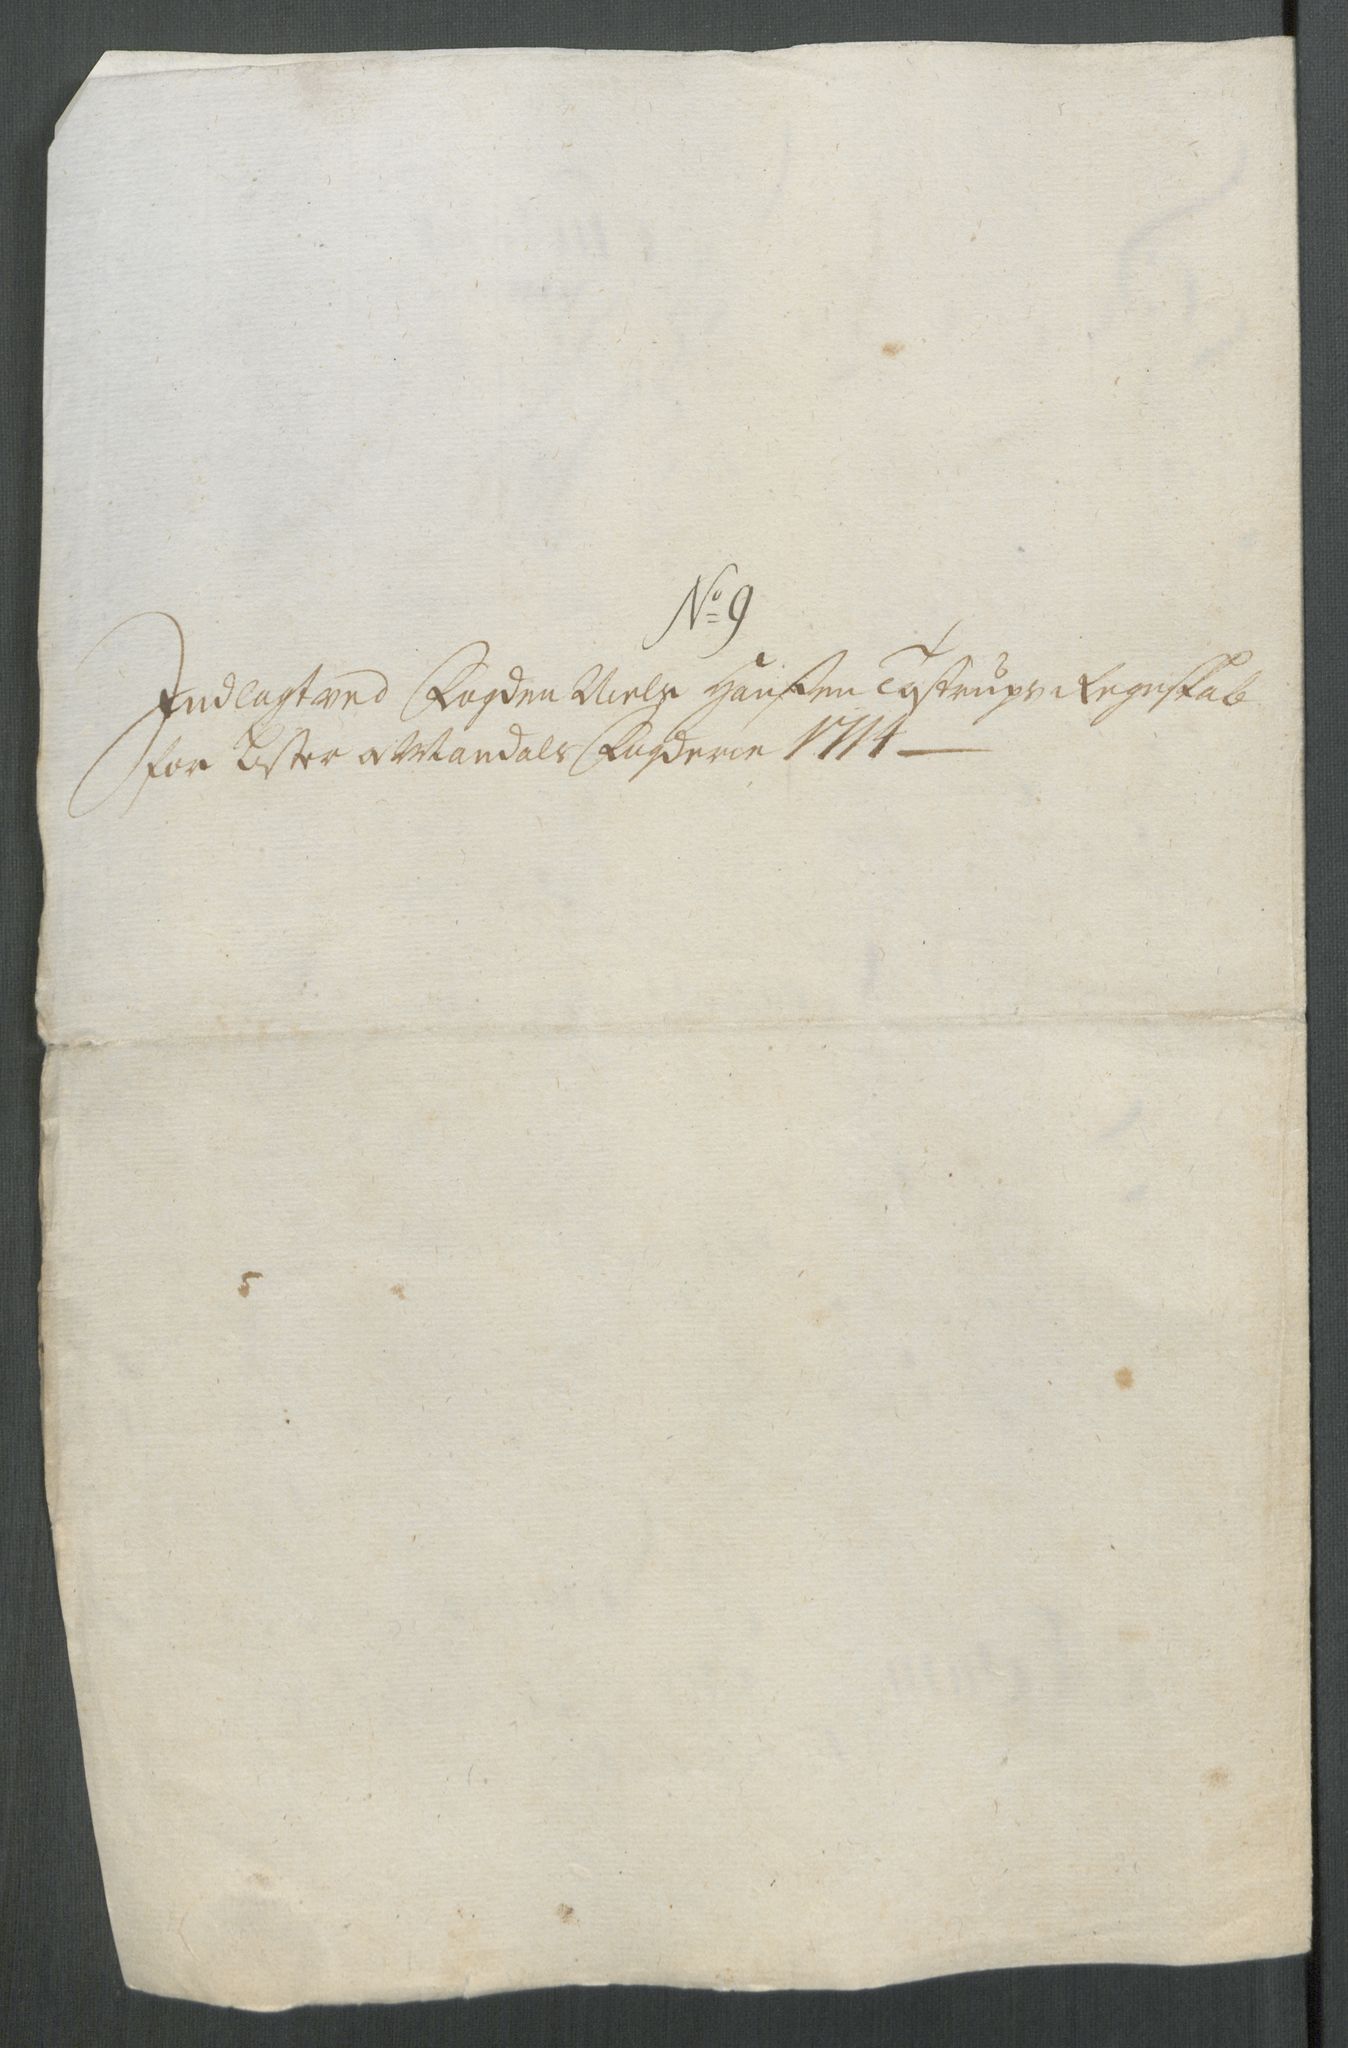 No 9
Indlagt ved Fogden Niels Hanssen Tystrups Regnskab
for Lister o Mandals Fogderie 1714